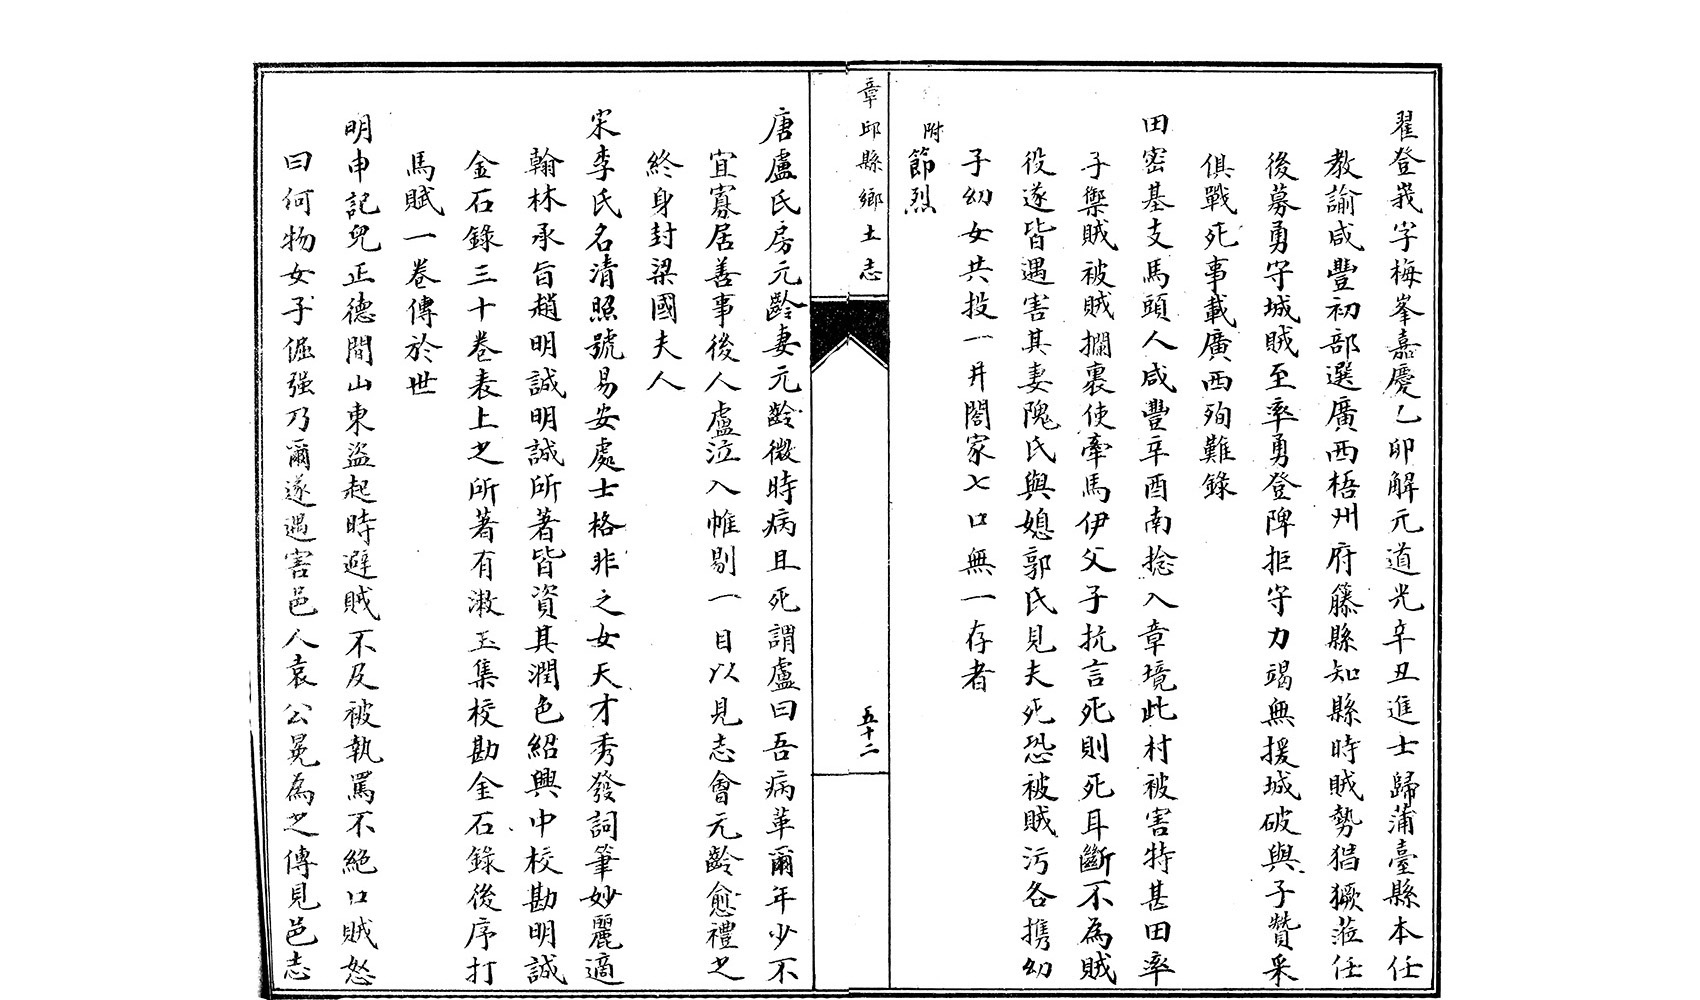 翟登峩字梅峯嘉慶乙卯解元道光辛丑進士歸蒲臺縣本任
教諭咸豐初部選廣西梧州府籐縣知縣時賊勢猖獗蒞任
後募勇守城賊至率勇登陴拒守力竭無援城破與子贊采
俱戰死事載廣西殉難錄
田密基支馬頭人咸豐辛酉南捻入章境此村被害特甚田率
子禦賊被賊擱裏使牽馬伊父子抗言死則死耳斷不為賊
役遂皆遇害其妻隗氏與媳郭氏見夫死恐被賊污各携幼
子幼女共投一井閤家七口無一存者
附節烈
章邱縣鄉土志
五十二
唐盧氏房元齡妻元齡微時病且死謂盧曰吾病革爾年少不
宜寡居善事後人盧泣入帷剔一目以見志會元齡愈禮之
終身封梁國夫人
宋李氏名清照號易安處士格非之女天才秀發詞筆妙麗適
翰林承旨趙明誠明誠所著皆資其潤色紹興中校勘明誠
金石錄三十卷表上之所著有漱玉集校勘金石錄後序打
馬賦一卷傳於世
明申記兒正德間山東盜起時避賊不及被執罵不絕口賊怒
曰何物女子倔强乃爾遂遇害邑人袁公冕為之傳見邑志